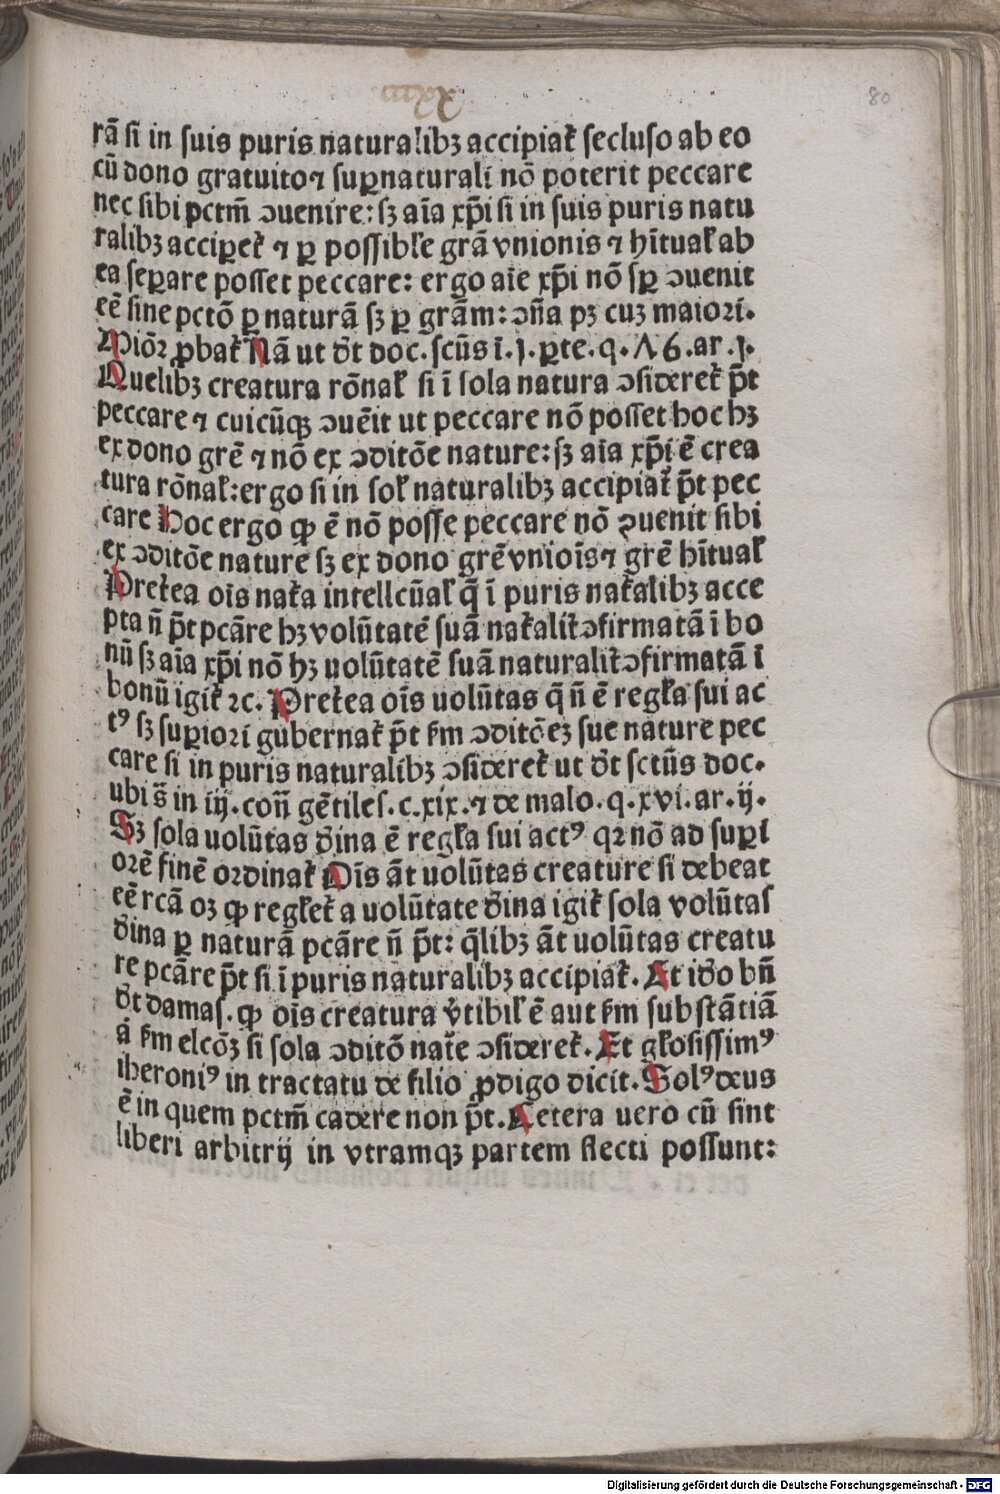 ccxx
80
rā ſi in ſuis puris naturalibꝫ accipiat᷑ ſecluſo ab eo
cū dono gratuito⁊ ſuꝑnaturali nō poterit peccare
nec ſibi pctm̄ ꝯuenire: ſꝫ aīa xp̄i ſi in ſuis puris natu
ralibꝫ acciꝑet᷑ ⁊ ꝑ poſſibil̓e grā vnionis ⁊ hītual̓ ab
ea ſeꝑare poſſet peccare: ergo aīe xp̄i nō ſꝑ ꝯuenit
eē ſine pctō ꝑ naturā ſꝫ ꝑ grām: ꝯn̄a pꝫ cuꝫ maiori.
Miōꝛ ꝓbat᷑ Nā ut d̓t doc. ſcūs ī. j. ꝑte. q. Λ6. ar. j.
Quelibꝫ creatura rōnal̓ ſi ī ſola natura ꝯſideret᷑ p̄t
peccare ⁊ cuicūqꝫ ꝯuēit ut peccare nō poſſet hoc hꝫ
ex dono grē ⁊ nō ex ꝯditōe nature: ſꝫ aīa xp̄i ē crea
tura rōnal̓: ergo ſi in ſol̓ naturalibꝫ accipiat᷑ p̄t pec
care Hoc ergo ꝙ ē nō poſſe peccare nō ꝯuenit ſibi
ex ꝯditōe nature ſꝫ ex dono grē vnioīs ⁊ grē hītual̓
Pret᷑ea oīs nat᷑a intellcūal̓ q̄ ī puris nat᷑alibꝫ acce
pta n̄ p̄t pcāre hꝫ volūtatē ſuā nat᷑alit᷑ ꝯfirmatā ī bo
nū ſꝫ aīa xp̄i nō hꝫ uolūtatē ſuā naturalit᷑ ꝯfirmatā ī
bonū igit᷑ ⁊c. Pret᷑ea oīs uolūtas q̄ n̄ ē regl̓a ſui ac
tꝰ ſꝫ ſuꝑioꝛi gubernat᷑ p̄t ẜm ꝯditōeꝫ ſue nature pec
care ſi in puris naturalibꝫ ꝯſideret᷑ ut d̓t ſctūs doc.
ubi s̄ in iij. con̄ gētileſ. c. xix. ⁊ de malo. q. xvi. ar. ij.
Sꝫ ſola uolūtas d̓ina ē regl̓a ſui actꝰ qꝛ nō ad ſuꝑi
oꝛē finē oꝛdinat᷑ Oīs āt uolūtas creature ſi debeat
eē rcā oꝫ ꝙ regl̓et᷑ a uolūtate d̓ina igit᷑ ſola volūtaſ
d̓ina ꝑ naturā pcāre n̄ p̄t: q̄libꝫ āt uolūtas creatu
re pcāre p̄t ſi ī puris naturalibꝫ accipiat᷑. Et id̓o bn̄
d̓t damaſ. ꝙ oīs creatura v̓tibil̓ ē aut ẜm ſubſtātiā
ā ẜm elcōꝫ ſi ſola ꝯditō nat᷑e ꝯſideret᷑. Et gl̓oſiſſimꝰ
iheroniꝰ in tractatu de filio ꝓdigo dicit. Solꝰ deus
ē in quem pctm̄ cadere non p̄t. Cetera uero cū ſint
liberi arbitrij in vtramqꝫ partem flecti poſſunt:
Digitalisierung gefördert durch die Deutsche Forschungsgemeinschaft - DFG